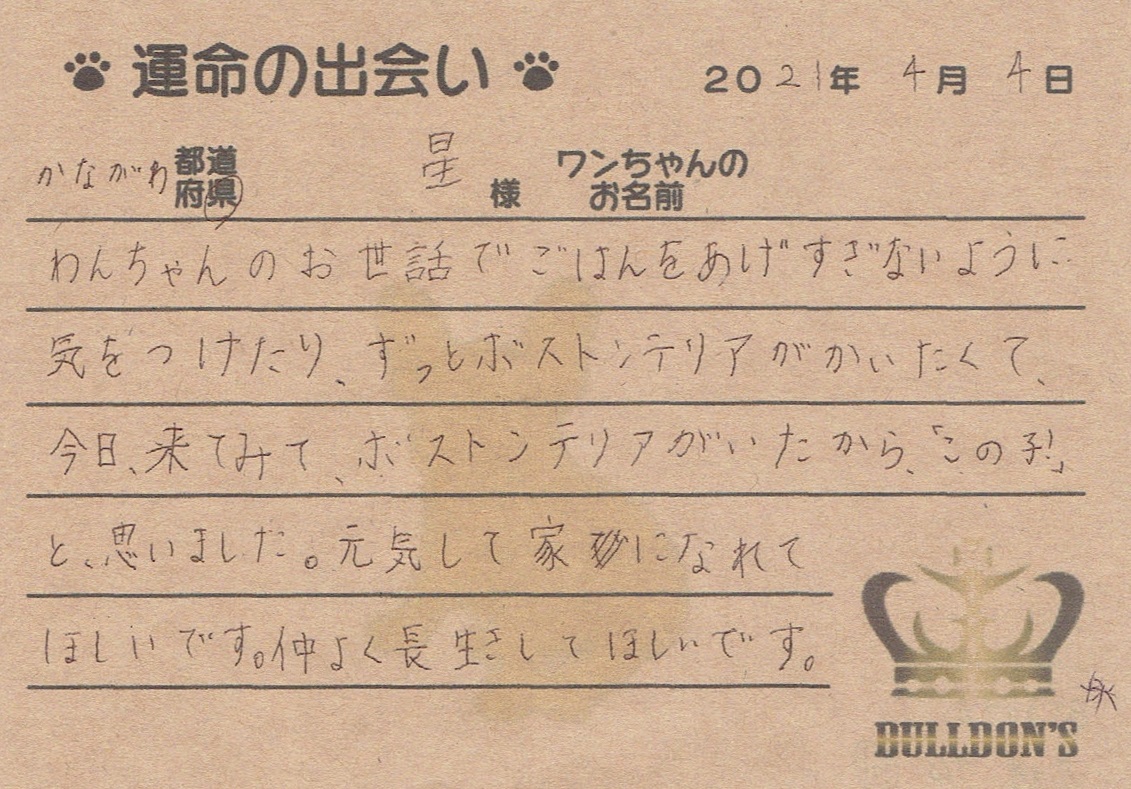 運命の出会い 2021年 4月 4日
かながわ 都道府県 星 様 ワンちゃんのお名前
わんちゃんのお世話でごはんをあげすぎないように
気をつけたり、ずっとボストンテリアがかいたくて、
今日、来てみて、ボストンテリアがいたから、「この子!」
と、思いました。元気して家になれて
ほしいです。仲よく長生きしてほしいです。
BULLDON'S